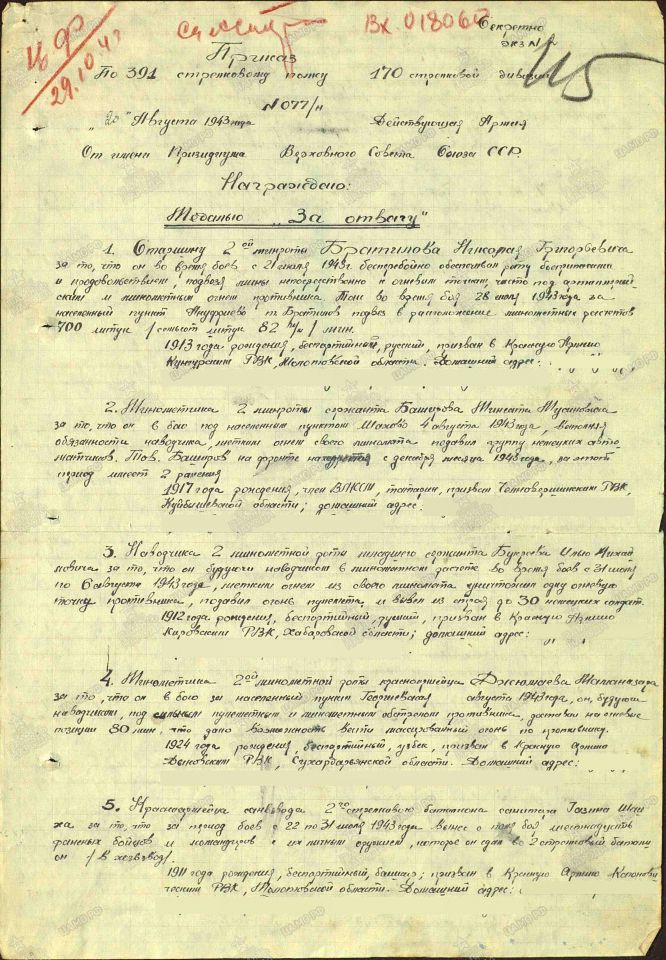 Секретно
экз N
Вх. 01806
29.10.43
Приказ
По 391 стрелковому полку 170 стрелковой дивизии
N 077/н
"20" Августа 1943 года Действующая Армия
От имени Президиума Верховного Совета Союза ССР.
Награждаю:
Медалью "За отвагу"
1. Старшину 2ой минроты Николая Григорьевича
за то, что он во время боев с 21 июля 1943г. бесперебойно обеспечивал роту боеприпасами
и продовольствием, подвозя мины непосредственно к огневым точкам, часто под артиллерий
ским и минометным огнем противника. во время боя 28 июля 1943 года за
населенный пункт т. подвез в расположение минометных расчетов
700 штук /семьсот штук 82 м/м мин.
1913 года рождения, беспартийный, русский, призван в Красную Армию
Кунгурским РВК, Молотовской области. Домашний адрес:
2. Минометчика 2 минроты сержанта Баширова
за то, что он в бою под населенным пунктом Шахово 4 августа 1943 года, выполняя
обязанности наводчика, метким огнем своего миномета подавил группу немецких авто
матчиков. Тов. Баширов на фронте с декабря месяца 1942 года, за этот
период имеет 2 ранения
1917 года рождения, член ВЛКСМ, татарин, призван Челновершинским РВК,
Куйбышевской области; домашний адрес:
3. Наводчика 2 минометной роты младшего сержанта Илью Михай
ловича за то, что он будучи наводчиком в минометном расчете во время боев с 31 июля
по 6 августа 1943 года, метким огнем из своего миномета уничтожил одну огневую
точку противника, подавил огонь пулемета, и вывел из строя до 30 немецких солдат.
1912 года рождения, беспартийный, русский, призван в Красную Армию
Кировским РВК, Хабаровской области; домашний адрес:
4. Минометчика 2ой минометной роты красноармейца
за то, что он в бою за населенный пункт Георгиевская августа 1943 года, он, будучи
наводчиком, под сильным пулеметным и минометным обстрелом противника, доставил на огневые
позиции 30 мин, что дало возможность вести массированный огонь по противнику.
1924 года рождения, беспартийный, узбек, призван в Красную Армию
РВК, Сурхандарьинской области. Домашний адрес:
5. Красноармейца санвзвода 2го стрелкового батальона санитара
за то, что за период боев с 22 по 31 июля 1943 года вынес с поля боя шестнадцать
раненых бойцов и командиров с их личным оружием, которое он сдал во 2 стрелковый батальон
/В хозвзвод/
1911 года рождения, беспартийный, призван в Красную Армию
РВК, Молотовской области. Домашний адрес: